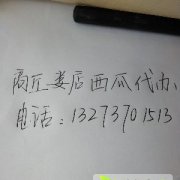 商丘娄店西瓜代办、
电话：13273701513